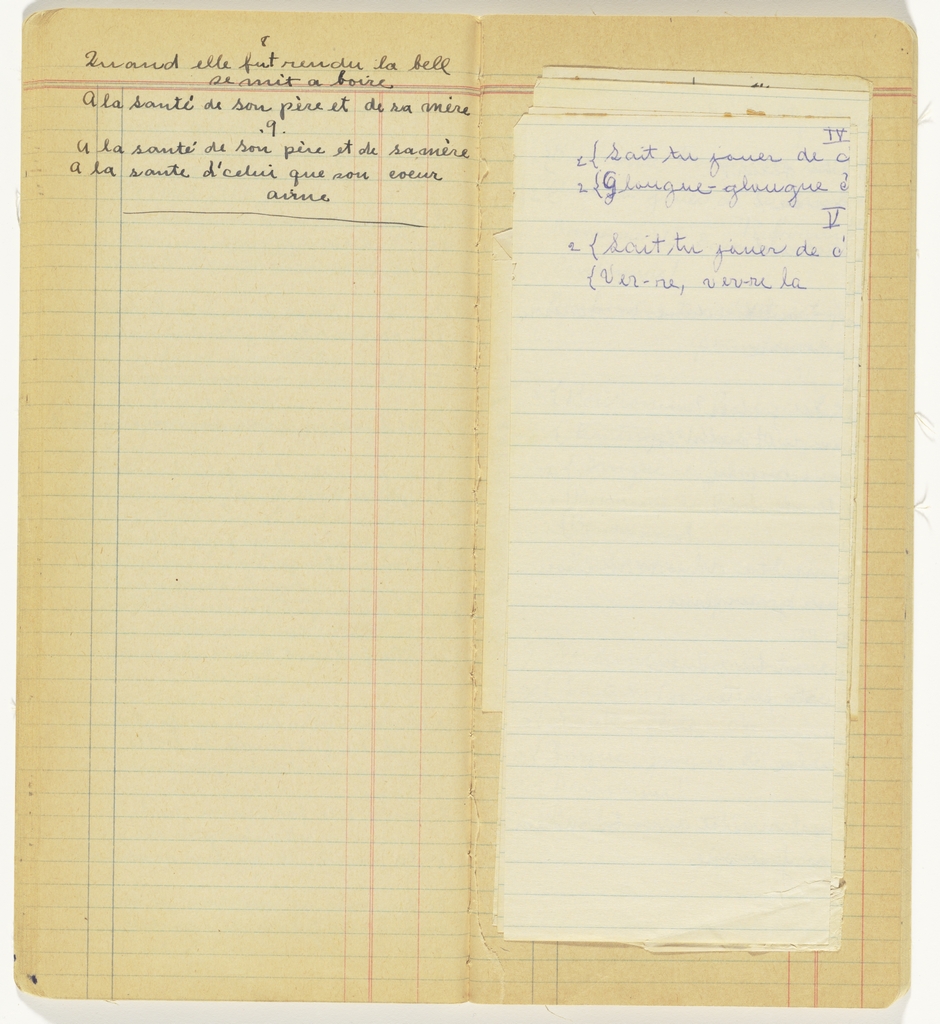 8
Quand elle fut rendu la bell
se mit a boire
A la santé de son père et de sa mère
.9.
A la santé de son père et de sa mère
A la sante d'celui que son coeur
aime
IV
2 { Sait, tu jouer de
2 { Glougue-glougue
V
2 { Sait, tu jouer de
{ Ver-re, ver-re la